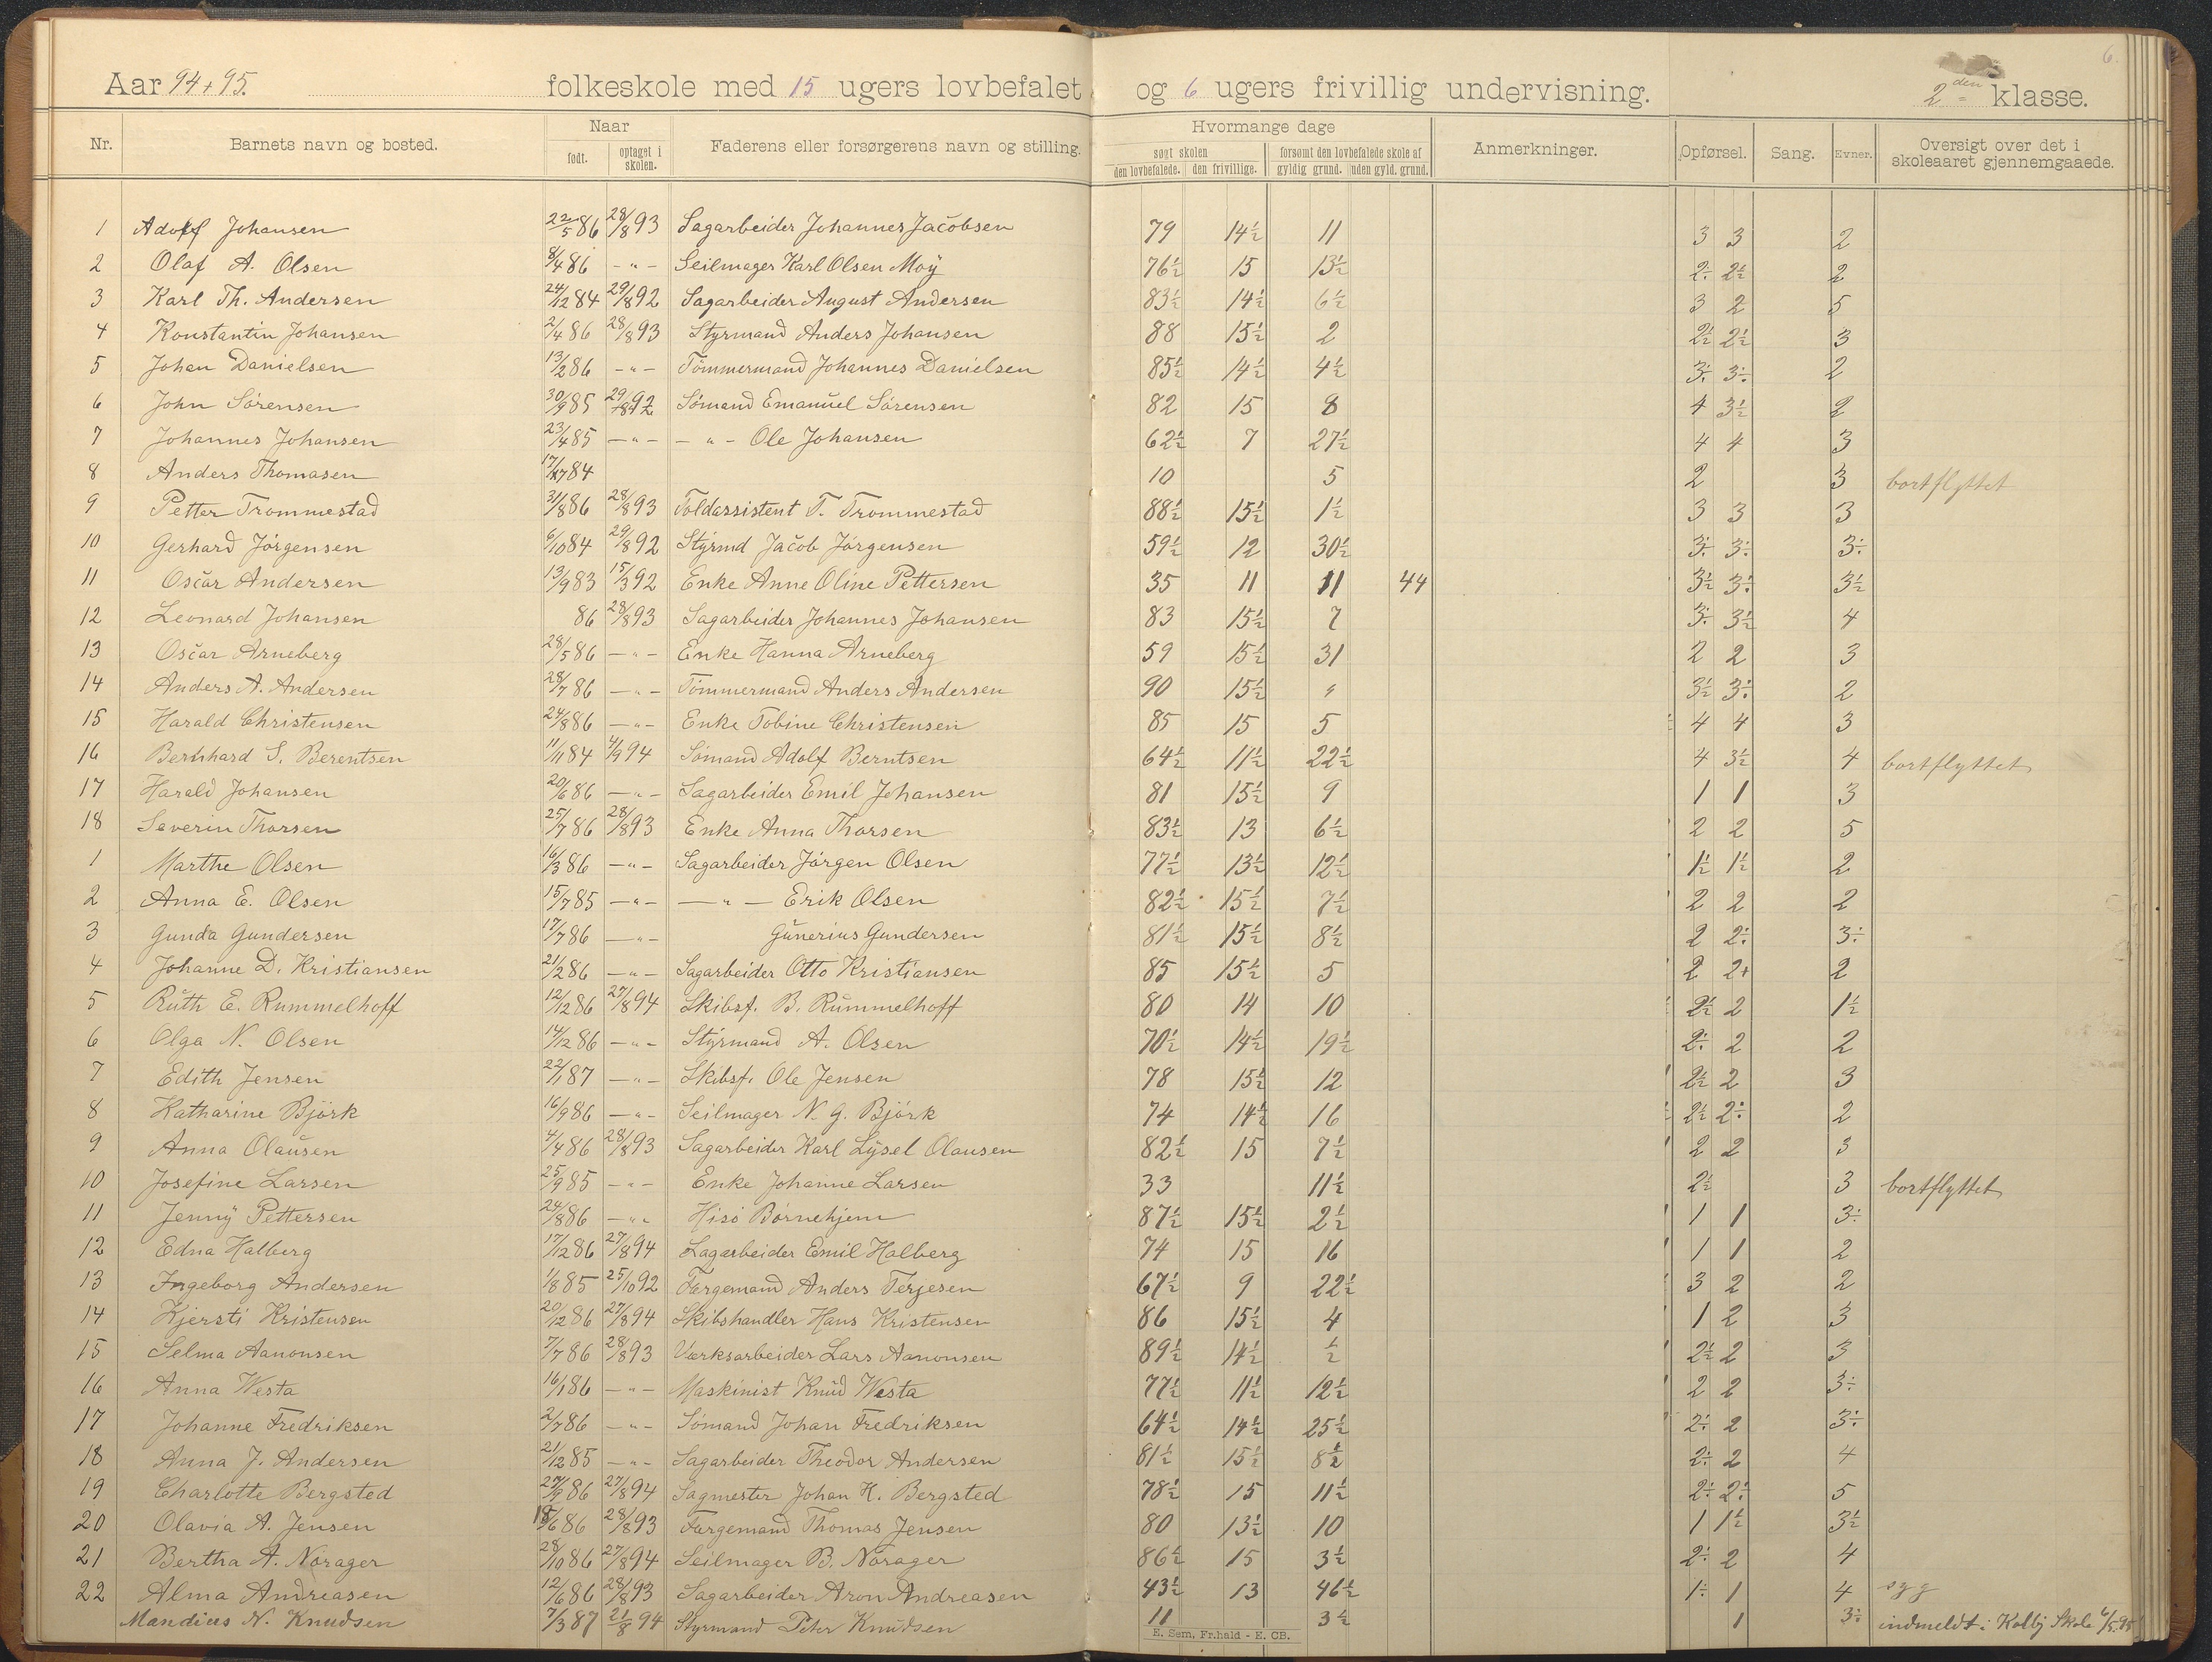 Aar 94+95. folkeskole med 15 ugers lovbefalet og 6 ugers frivillig undervisning. 2den klasse. 6.
Nr. Barnets navn og bosted. Naar født. optaget i skolen. Faderens eller forsørgerens navn og stilling. Hvormange dage søgt skolen den lovbefalede. den frivillige. forsømt den lovbefalede skole af gyldig grund. uden gyld. grund. Anmerkninger. Opførsel. Sang. Evner. Oversigt over det i skoleaaret gjennemgaaede.
1 Adolf Johansen 22/5 86 28/8 93 Sagarbeider Johannes Jacobsen 79 14½ 11 3 3 2
2 Olaf A. Olsen 8/4 86 -"- Seilmager Karl Olsen Moÿ 76½ 15 13½ 2÷ 2½ 2
3 Karl Th. Andersen 24/12 84 29/8 92 Sagarbeider August Andersen 83½ 14½ 6½ 3 2 5
4 Konstantin Johansen 2/4 86 28/8 93 Styrmand Anders Johansen 88 15½ 2 2½ 2½ 3
5 Johan Danielsen 13/2 86 -"- Tömmermand Johannes Danielsen 85½ 14½ 4½ 3÷ 3÷ 2
6 John Sörensen 30/9 85 29/8 92 Sömand Emanuel Sörensen 82 15 8 4 3½ 2
7 Johannes Johansen 23/4 85 -"- -"- Ole Johansen 62½ 7 27½ 4 4 3
8 Anders Thomasen 84 10 5 2 3 bortflyttet
9 Petter Trommestad 31/8 86 28/8 93 Toldassistent T. Trommestad 88½ 15½ 1½ 3 3 3
10 Gerhard Jörgensen 6/10 84 29/8 92 Stÿrmd Jacob Jörgensen 59½ 12 30½ 3÷ 3÷ 3÷
11 Oscar Andersen 13/9 83 15/3 92 Enke Anne Oline Pettersen 35 11 11 44 3½ 3÷ 3½
12 Leonard Johansen 86 28/8 93 Sagarbeider Johannes Johansen 83 15½ 7 3÷ 3½ 4
13 Oscar Arneberg 28/5 86 -"- Enke Hanna Arneberg 59 15½ 31 2 2 3
14 Anders A. Andersen 28/7 86 -"- Tömmermand Anders Andersen 90 15½ " 3½ 3÷ 2
15 Harald Christensen 24/8 86 -"- Enke Tobine Christensen 85 15 5 4 4 3
16 Bernhard S. Berentsen 11/11 84 4/9 94 Sömand Adolf Berntsen 64½ 11½ 22½ 4 3½ 4 bortflyttet
17 Harald Johansen 20/6 86 -"- Sagarbeider Emil Johansen 81 15½ 9 1 1 3
18 Severin Thorsen 25/7 86 28/8 93 Enke Anna Thorsen 83½ 13 6½ 2 2 5
1 Marthe Olsen 16/3 86 -"- Sagarbeider Jörgen Olsen 77½ 13½ 12½ 1½ 1½ 2
2 Anna E. Olsen 15/7 85 -"- -"- Erik Olsen 82½ 15½ 7½ 2 2 2
3 Gunda Gundersen 17/7 86 -"- Gunerius Gundersen 81½ 15½ 8½ 2 2÷ 3÷
4 Johanne D. Kristiansen 21/2 86 -"- Sagarbeider Otto Kristiansen 85 15½ 5 2 2+ 2
5 Ruth E. Rummelhoff 12/12 86 27/8 94 Skibsf. B. Rummelhoff 80 14 10 2½ 2 1½
6 Olga N. Olsen 14/12 86 -"- Stÿrmand A. Olsen 70½ 14½ 19½ 2÷ 2 2
7 Edith Jensen 22/1 87 -"- Skibsf. Ole Jensen 78 15½ 12 2½ 2 3
8 Katharine Björk 16/9 86 -"- Seilmager N. G. Björk 74 14½ 16 2½ 2÷ 2
9 Anna Olausen 4/4 86 28/8 93 Sagarbeider Karl Lÿsel Olausen 82½ 15 7½ 2 2 3
10 Josefine Larsen 25/9 85 -"- Enke Johanne Larsen 33 11½ 2½ 3 bortflyttet
11 Jennÿ Pettersen 24/8 86 -"- Hisö Börnehjem 87½ 15½ 2½ 1 1 3÷
12 Edna Halberg 17/12 86 27/8 94 Sagarbeider Emil Halberg 74 15 16 1 1 2
13 Ingeborg Andersen 1/8 85 25/10 92 Færgemand Anders Terjesen 67½ 9 22½ 3 2 2
14 Kjersti Kristensen 20/12 86 27/8 94 Skibshandler Hans Kristensen 86 15½ 4 1 2 3
15 Selma Aanonsen 7/7 86 28/8 93 Værksarbeider Lars Aanonsen 89½ 14½ ½ 2½ 2 3
16 Anna Westa 16/1 86 -"- Maskinist Knud Westa 77½ 11½ 12½ 2 2 3÷
17 Johanne Fredriksen 2/7 86 -"- Sömand Johan Fredriksen 64½ 14½ 25½ 2÷ 2 3÷
18 Anna J. Andersen 21/12 85 -"- Sagarbeider Theodor Andersen 81½ 15½ 8½ 2÷ 2 4
19 Charlotte Bergsted 27/9 86 27/8 94 Sagmester Johan H. Bergsted 78½ 15 11½ 2÷ 2÷ 5
20 Olavia A. Jensen 18/6 86 28/8 93 Færgemand Thomas Jensen 80 13½ 10 1 1½ 3½
21 Bertha A. Nörager 28/10 86 27/8 94 Seilmager B. Nörager 86½ 15 3½ 2÷ 2 4
22 Alma Andreasen 12/6 86 28/8 93 Sagarbeider Aron Andreasen 43½ 13 46½ 1÷ 1 4 syg
Mandius N. Knudsen 7/3 87 21/8 94 Styrmand Peter Knudsen 11 3½ 1 3÷ indmeldt i Kolbj. Skole 6/5 95
E. Sem, Fr.hald - E. CB.